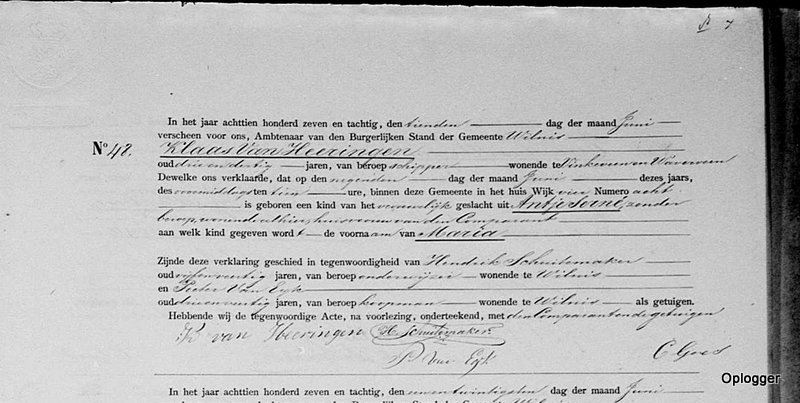 7
In het jaar achttien honderd zeven en tachtig, den tienden dag der maand Juni
verscheen voor ons, Ambtenaar van den Burgerlijken Stand der Gemeente Wilnis
No 48. Klaas Van Heeringen
oud drie en dertig jaren, van beroep schipper wonende te Vinkeveen en Waverveen
Dewelke ons verklaarde, dat op den negenden dag der maand Juni dezes jaars,
des voormiddags ten tien ure, binnen deze Gemeente in het huis Wijk vier Numero acht
is geboren een kind van het vrouwelijk geslacht uit Antje Serné, zonder
beroep, wonende alhier, huisvrouw van den Comparant
aan welk kind gegeven wordt de voornaam van Maria
Zijnde deze verklaring geschied in tegenwoordigheid van Hendrik Schuitemaker
oud vijf en veertig jaren, van beroep onderwijzer wonende te Wilnis
en Pieter Van Eyk
oud drie en veertig jaren, van beroep koopman wonende te Wilnis als getuigen.
Hebbende wij de tegenwoordige Acte, na voorlezing, onderteekend, met den Comparant en de getuigen
K van Heeringen H Schuitemaker
P. Van Eyk C Goes
Oplogger
In het jaar achttien honderd zeven en tachtig, den een en twintigsten dag der maand Juni